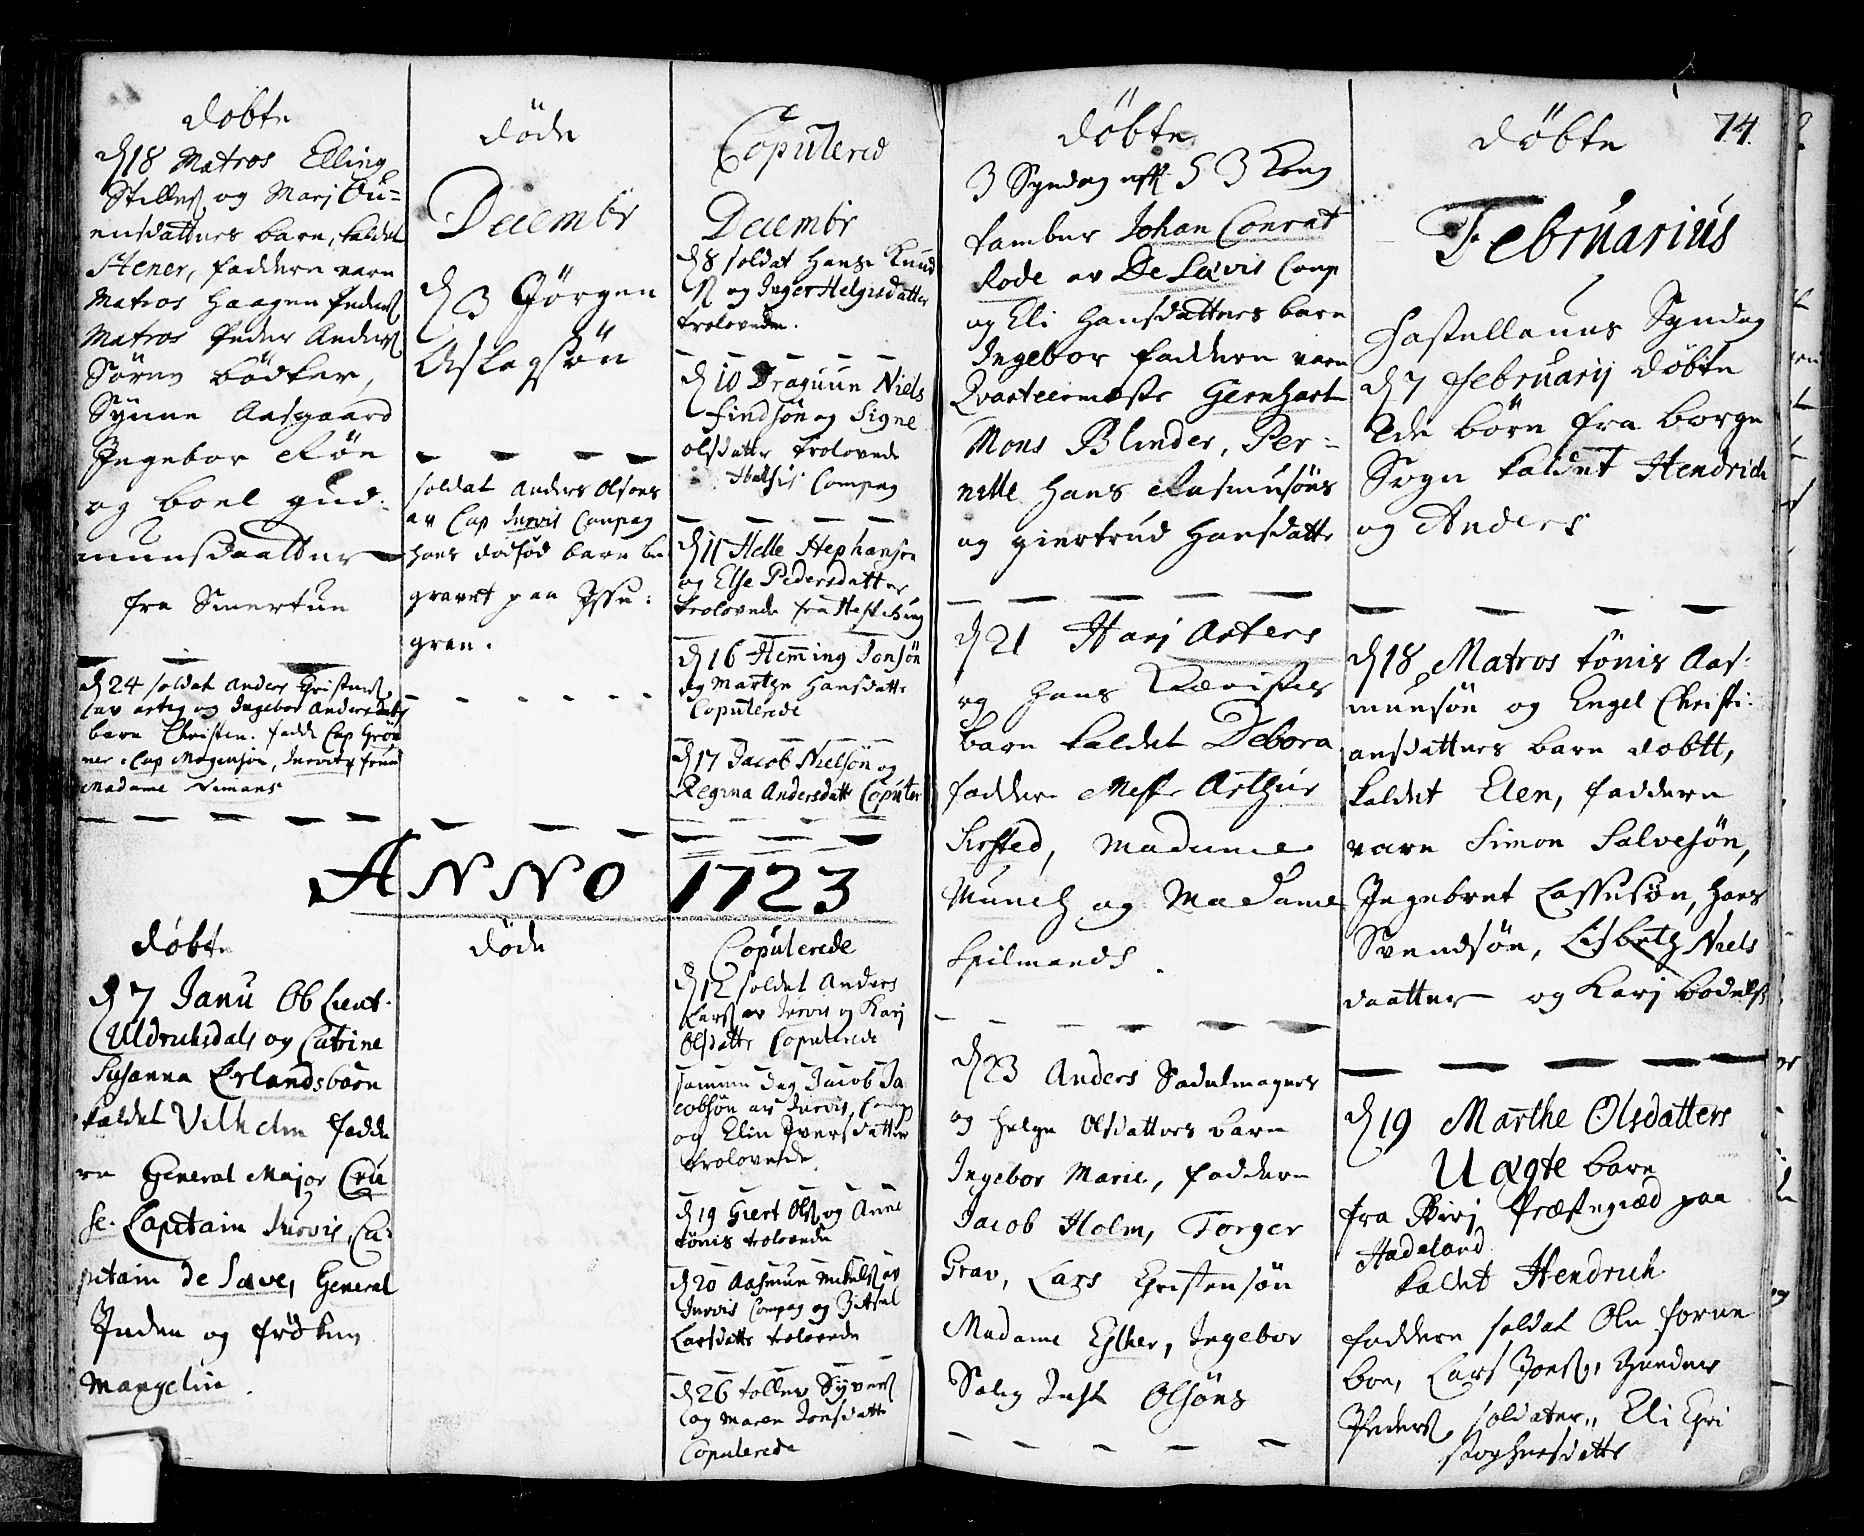 döbte
d 18 Matros Elling
Stillesß og Marj Ou=
ensdatters barn, kaldet
Stener, faddern varn
Matros Haagen Pedersß
Matros Peder Andersß
Sörren bödker,
Synne Aasgaard
Ingebor Rön
og boel gud:
munsdaatter
fra Smertun
d 24 soldat Anders Christensß
og Ingebor Andersdatters
barn Christen. fadd Cap Grön
ner, Cap Mogensön, Jurvitz fruu
Madame Nimans
döde
Decembr
d 23 Jörgen
Aslagsön
soldat Anders Olsens
av Cap Jurvis Compag
hans dödfød barn be
gravet paa Isse:
gran.
Copulered
Decembr
d 8 soldat Hans Knud
ß og Inger Helgisdatter
trolovede.
d 10 Draguun Niels
Findsön og Signe
olsdatter trolovede
Compag
d 11 Helle Stephansön
og Else Pedersdatter
trolovede fra
d 16 Hemming Jonsön
og Marthe Hansdatter
Copulerede
d 17 Jacob Nielsön og
Regina Andersdatter Copuler
ANNO 1723
döbte
d 7 Janu Ob Lieut.
Uldrichsdals og Catrine
Susanna Erlandsbarn
kaldet Vilhelm fadde
rn General Major Cru
se. Capitain Jurvis, Ca:
pitain de Sæve, General
Inden og frøken
Mangelin.
döde
Copulerede
d 12 soldat Anders
Larsß av Jurvis og Karj
Olsdatter Copulerede
samme dag Jacob Ja
cobsön av Jurvis, Comp
og Elin Iversdatter
trolovede
d 19 Giert Olsß og Anne
tönis trolovede
d 20 Aasmun Mikelsß av
Jurvis Compag og
Larsdatter trolovede
d 26 toller Syversß
og Maren Jonsdatter
Copulerede
döbte
3 Syndag eff H 3 Kong
tambur Johan Conrat
Rode av De Sævis Comp
og Eli Hansdatters barn
Ingebor faddern varn
Qvarteermæster Gernhart
Mons Blinder, Per=
nelle Hans Rasmusöns
og giertrud Hansdatter
d 21 Harj Arters
og Hans
barn kaldet Debora
faddere Mester Arthur
Sirsted, Madame
Munch og Madame
Spilmands.
d 23 Anders Sadelmagers
og Helge Olsdatters barn
Ingebor Marie, faddern
Jacob Holm, Torger
Grav, Lars Christensön
Madame Esther, Ingebor
Salig Just Olsöns
döbte
74.
Februarius
Fastellauns Syndag
d 7 februarij döbte
2de börn fra borge
Sogn kaldet Hendrich
og Anders
d 18 Matros tönis Aas:
munsön og Engel Christi:
ansdatters barn dobtt,
kaldet Elen, faddern
varn Simon Salvesön,
Ingebret Lassesön, Hans
Svendsön, Lisbeth Niels
daatter og Karj bodelsß
d 19 Marthe Olsdatters
Uægte barn
fra Birj Præstegiæd paa
Hadeland
kaldet Hendrich
faddern soldat Ole forne
boe, Lars Jonsß, Gunder
Pedersß soldater, Eli Chri
stophersdatter